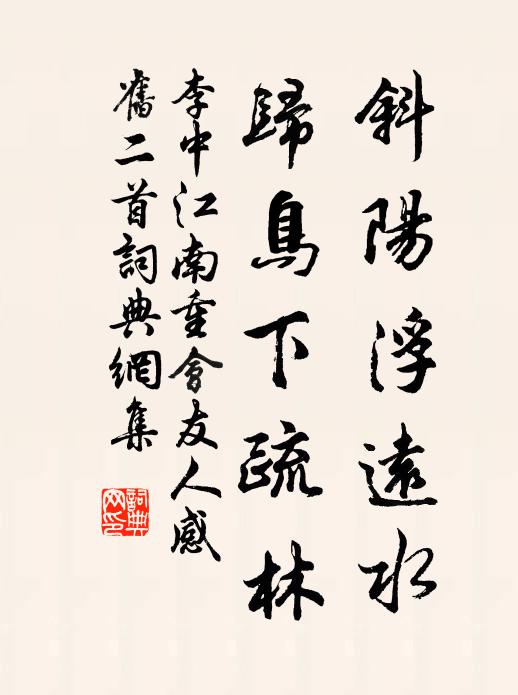 斜陽浮遠水
歸鳥下疏林
李中江南重會友人感
舊二首詞典網集
詞典
网印